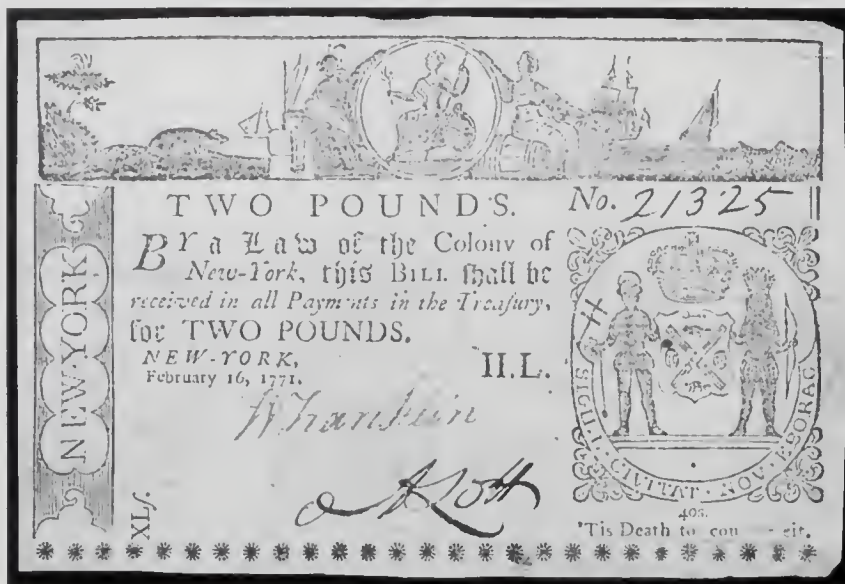 TWO POUNDS.
No. 21325
By a Law of the Colony of
New-York, this BILL shall be
received in all Payments in the Treasury,
for TWO POUNDS.
NEW-YORK,
February 16, 1771.
II.L.
NEW-YORK
XLs.
SIGILL CIVITAT · NOV · EBORAC
40s.
'Tis Death to cou eit.